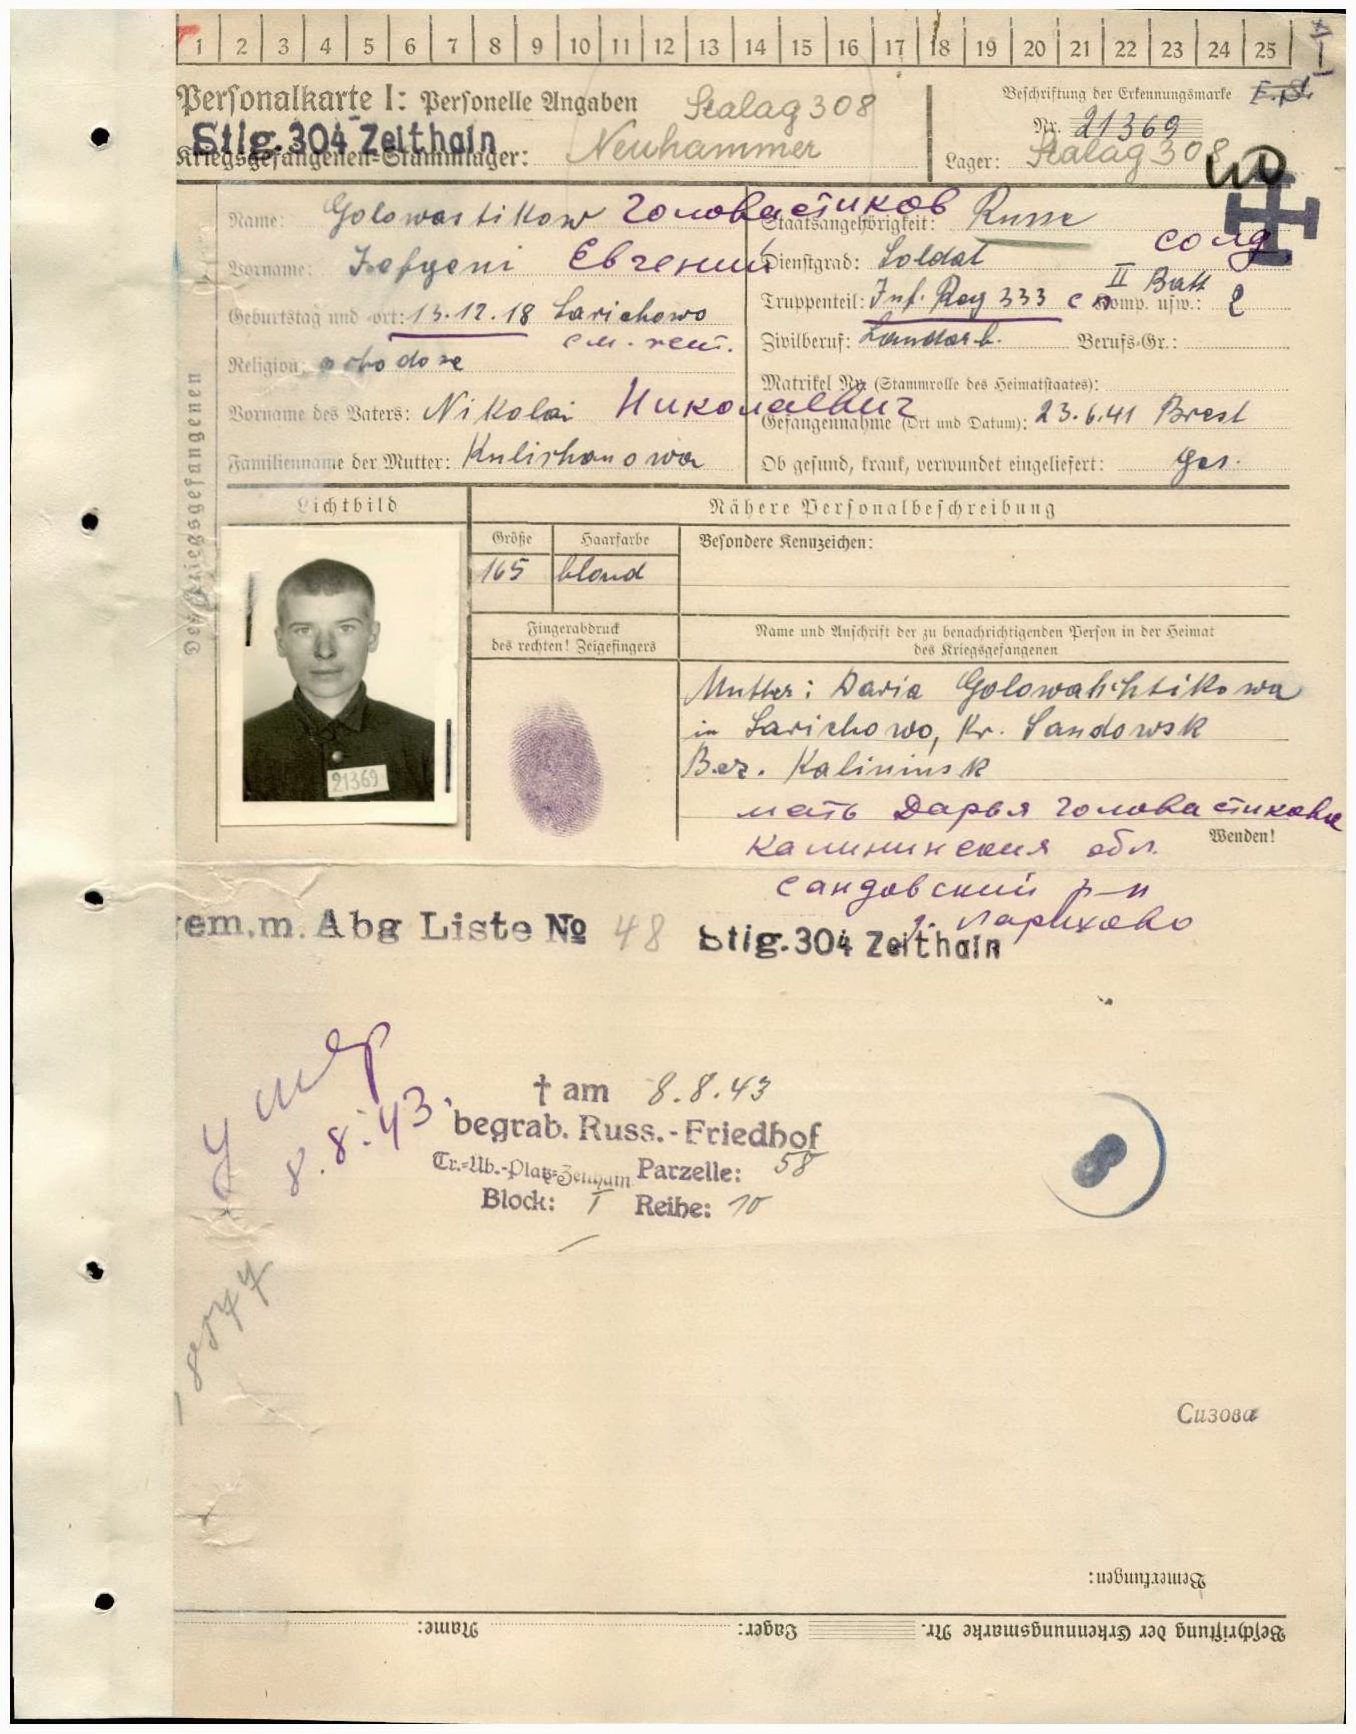 1 2 3 4 5 6 7 8 9 10 11 12 13 14 15 16 17 18 19 20 21 22 23 24 25
Personalkarte I: Personelle Angaben
Stalag 308
Beschriftung der Erkennungsmarke
Stlg. 304 Zeithain
Nr. 21369
Kriegsgefangenen-Stammlager: Neuhammer
Lager: Stalag 308
Des Kriegsgefangenen
Name: Golowastikow Головастиков
Staatsangehörigkeit: Russe
солд.
Vorname: Jefgeni Евгений
Dienstgrad: Soldat
II Batt
Truppenteil: Inf. Reg 333 сп Komp. usw.: 2
Geburtstag und -ort: 13.12.18 Larichowo
см. кент.
Zivilberuf: Landarb. Berufs-Gr.:
Religion: orthodoxe
Matrikel Nr. (Stammrolle des Heimatstaates):
Vorname des Vaters: Nikolai Николаевич
Gefangennahme (Ort und Datum): 23.6.41 Brest
Familienname der Mutter: Kulishanowa
Ob gesund, krank, verwundet eingeliefert: ges.
Lichtbild
Nähere Personalbeschreibung
Größe
Haarfarbe
Besondere Kennzeichen:
165 blond
21369
Fingerabdruck
des rechten! Zeigefingers
Name und Anschrift der zu benachrichtigenden Person in der Heimat
des Kriegsgefangenen
Mutter: Daria Golowahchtikowa
in Larichowo, Kr. Sandowsk
Bez. Kalininsk
мать Дарья Головастикова
Wenden!
Калининская обл.
Сандовский р-н
д. Ларихово
gem. m. Abg Liste № 48
Stlg. 304 Zeithain
Умер
8.8.43.
† am 8.8.43
begrab. Russ.-Friedhof
Tr.-Üb.-Platz-Zeithain Parzelle: 58
Block: I Reihe: 10
Сизова
Bemerkungen:
Beschriftung der Erkennungsmarke Nr. Lager: Name: